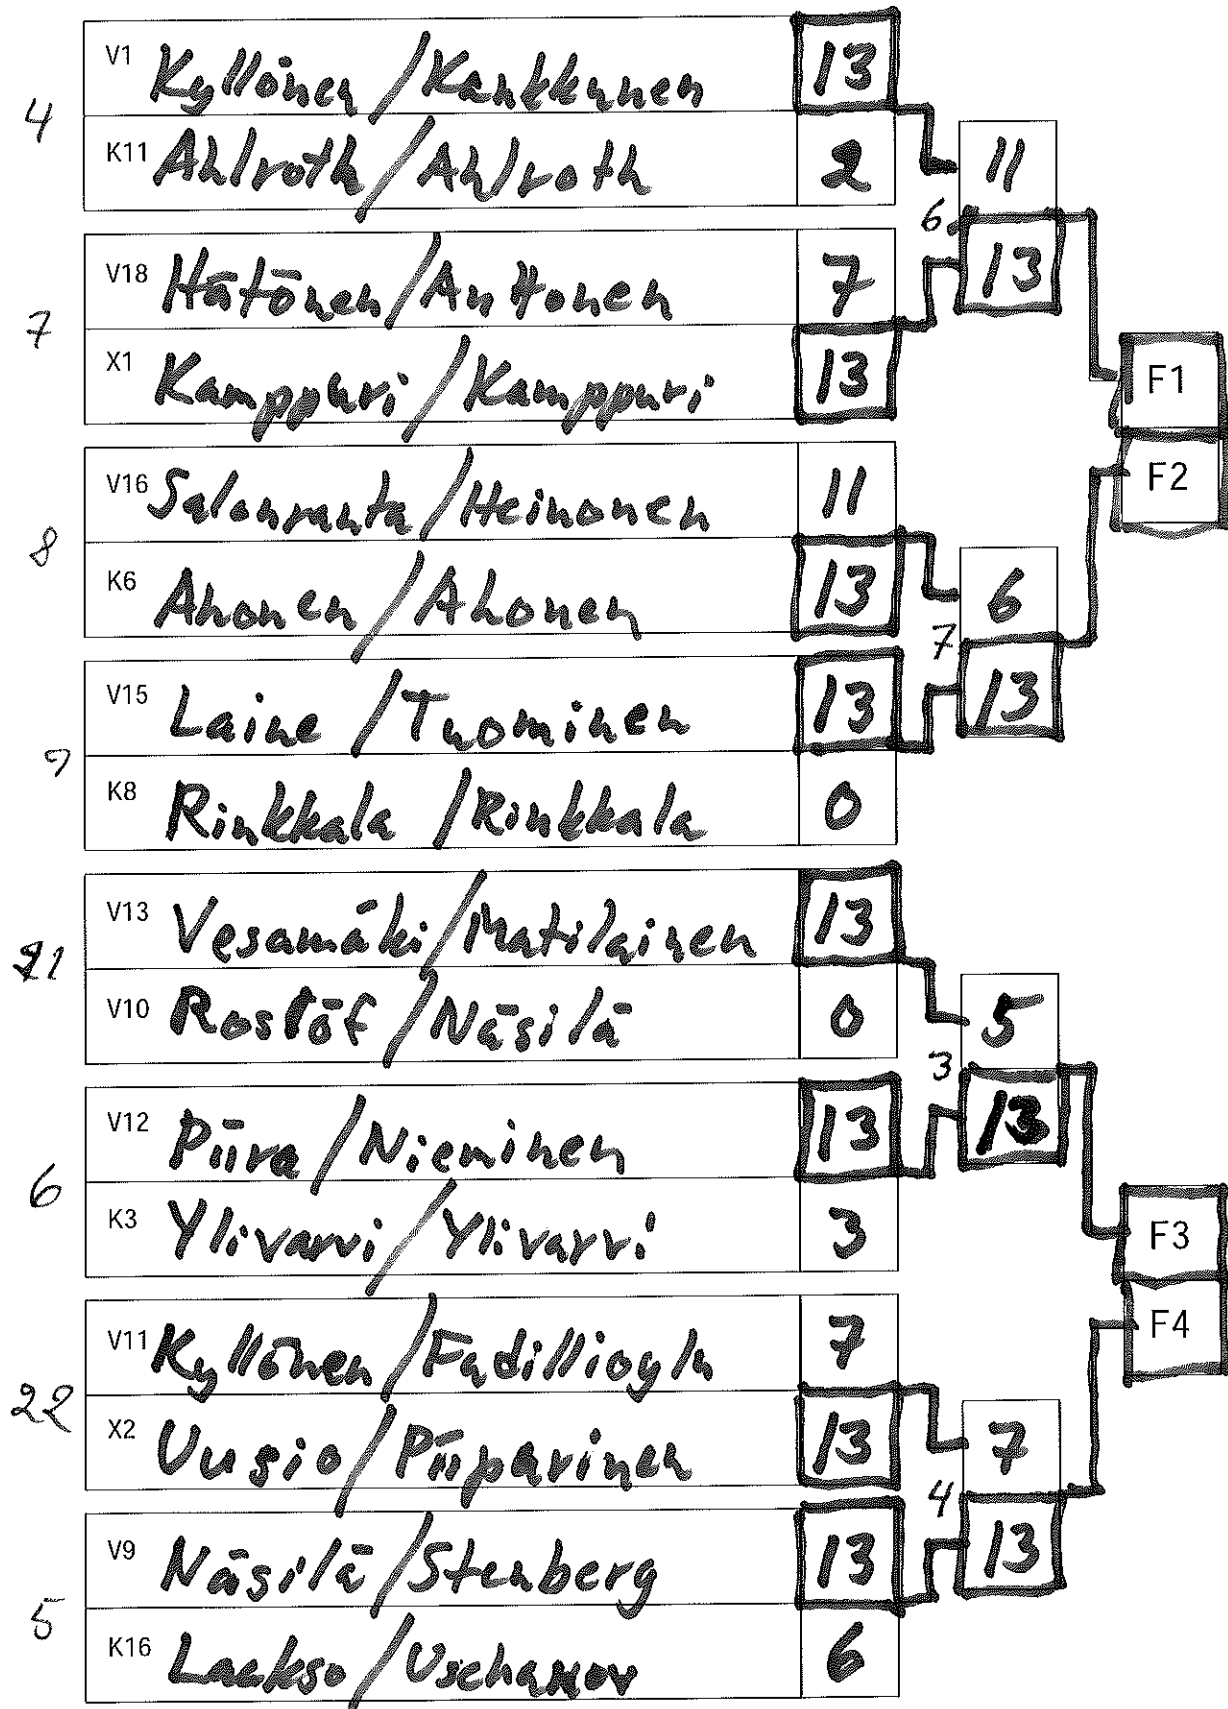 V1 Kyllönen / Kankkunen 13
4
K11 Ahlroth / Ahlroth 2
11
6
V18 Hätönen / Anttonen 7
13
7
X1 Kamppuri / Kamppuri 13
F1
V16 Salonranta / Heinonen 11
F2
8
K6 Ahonen / Ahonen 13
6
7
V15 Laine / Tuominen 13
13
K8 Rinkkala / Rinkkala 0
V13 Vesamäki / Matilainen 13
21
V10 Roslöf / Näsilä 0
5
3
V12 Piira / Nieminen 13
13
6
K3 Ylivarvi / Ylivarvi 3
F3
V11 Kyllönen / Fadillioglu 7
F4
22
X2 Uusio / Piiparinen 13
7
4
V9 Näsilä / Stenberg 13
13
5
K16 Laakso / Uschanov 6